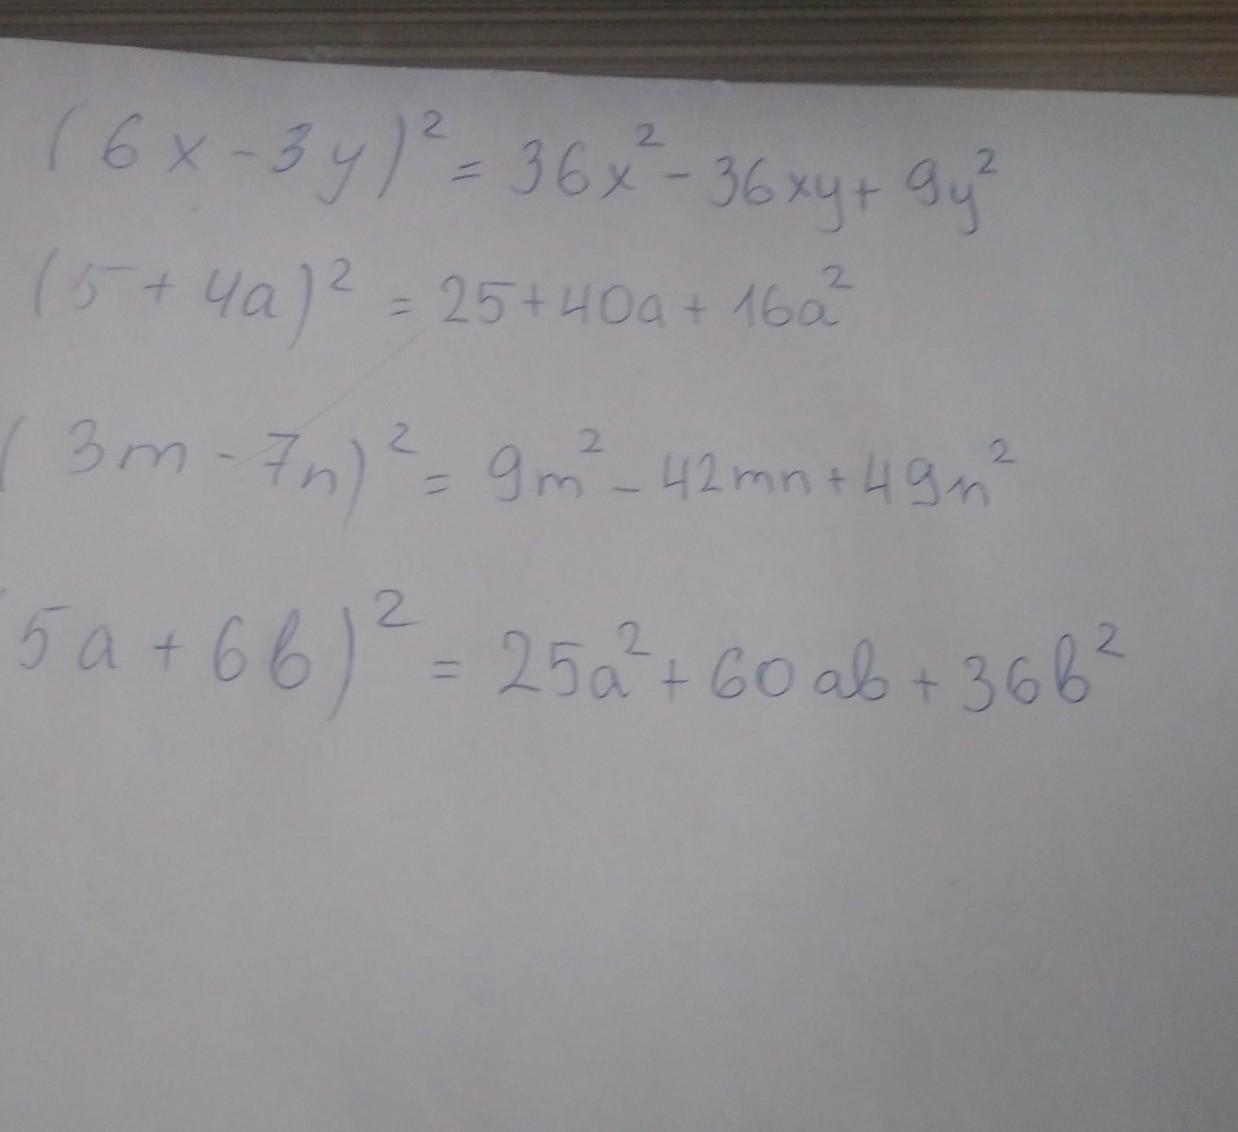 (6x - 3y)² = 36x² - 36xy + 9y²
(5 + 4a)² = 25 + 40a + 16a²
(3m - 7n)² = 9m² - 42mn + 49n²
(5a + 6b)² = 25a² + 60ab + 36b²